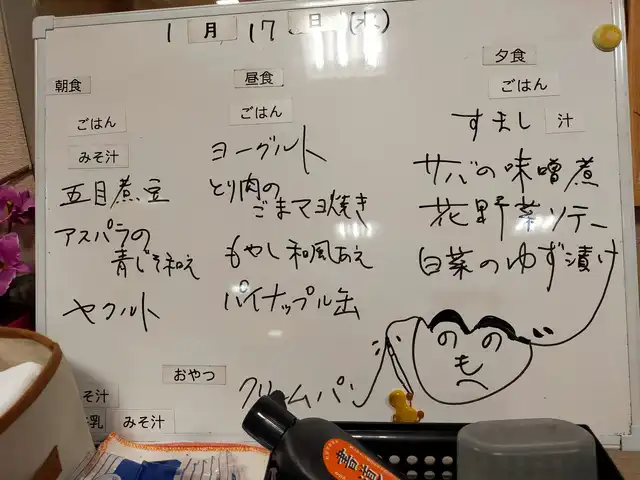 1月17日(水)
朝食
ごはん
みそ汁
五目煮豆
アスパラの
青じそ和え
ヤクルト
昼食
ごはん
ヨーグルト
とり肉の
ごまマヨ焼き
もやし和風あえ
パイナップル缶
夕食
ごはん
すまし汁
サバの味噌煮
花野菜ソテー
白菜のゆず漬け
おやつ
クリームパン
そ汁
乳
みそ汁
へのへのもへじ
書道